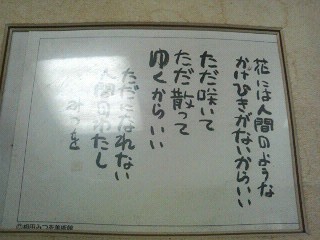 花には人間のような
かけひきがないからいい
ただ咲いて
ただ散って
ゆくからいい
ただになれない
人間のわたし
みつを
相田みつを美術館